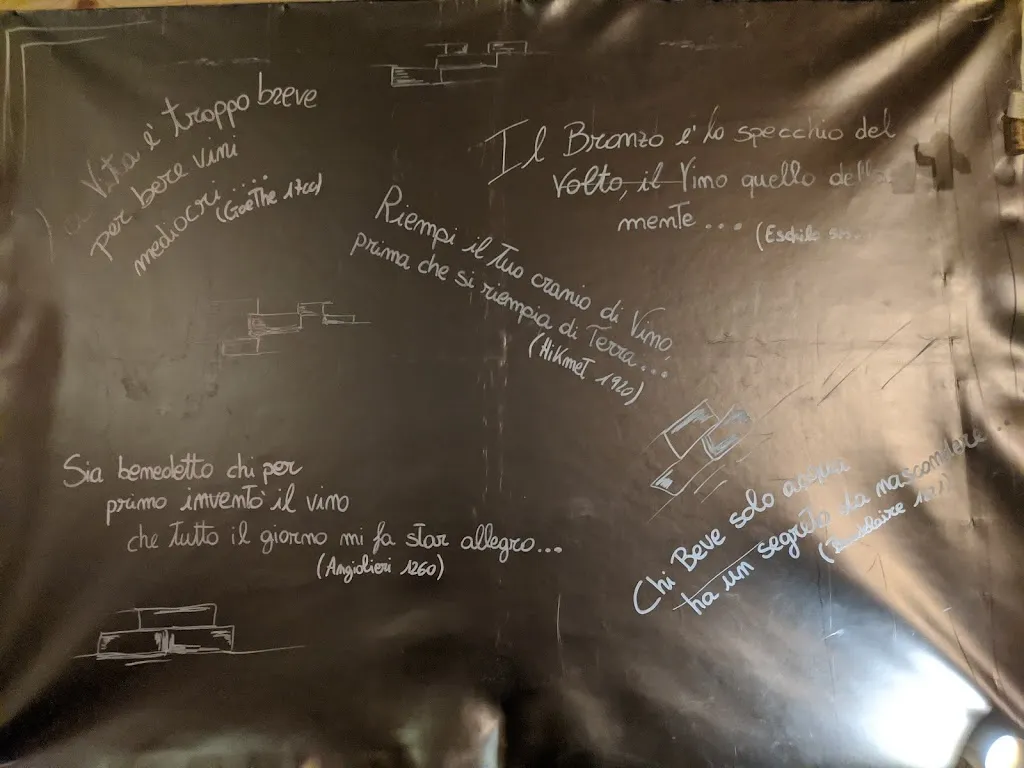 La Vita è troppo breve
per bere vini
mediocri.....
(Goethe 1749)
Il Bronzo è lo specchio del
Volto, il Vino quello della
mente...
(Eschilo
Riempi il Tuo cranio di Vino,
prima che si riempia di Terra...
(Hikmet 1920)
Sia benedetto chi per
primo inventò il vino
che tutto il giorno mi fa star allegro...
(Angiolieri 1260)
Chi Beve solo acqua
ha un segreto da nascondere...
(Baudelaire